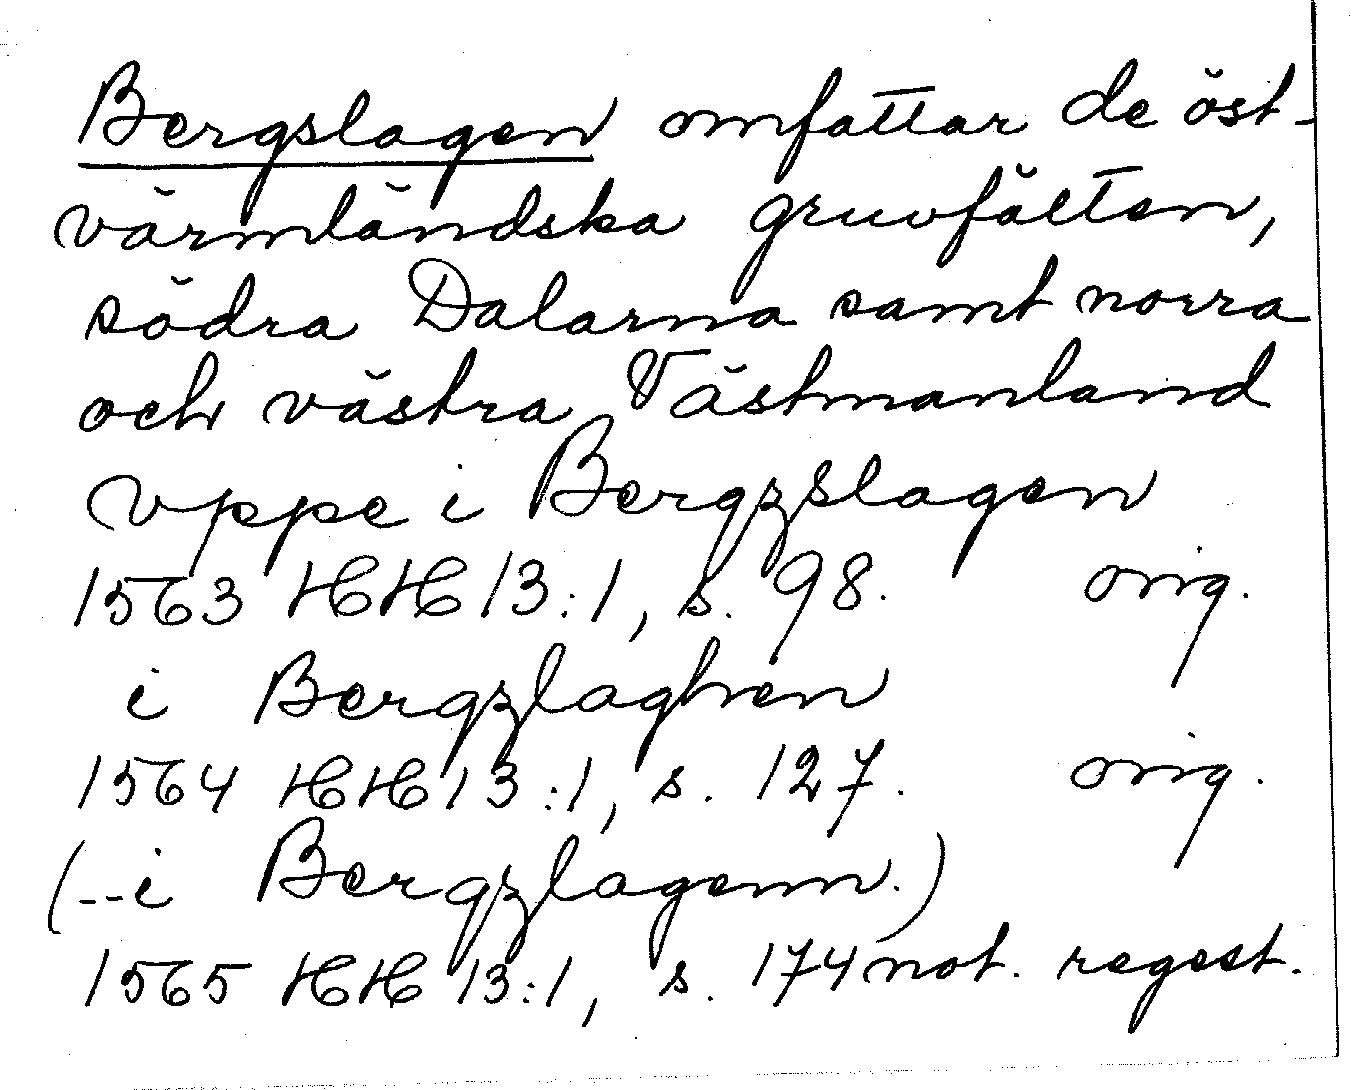 Bergslagen omfattar de öst-
värmländska gruvfälten,
södra Dalarna samt norra
och västra Västmanland
vppe i Bergzslagen
1563 HH 13:1, s. 98. orig.
i Bergzlaghen
1564 HH 13:1, s. 127. orig.
(--i Bergzlagenn.)
1565 HH 13:1, s. 174 not. regest.